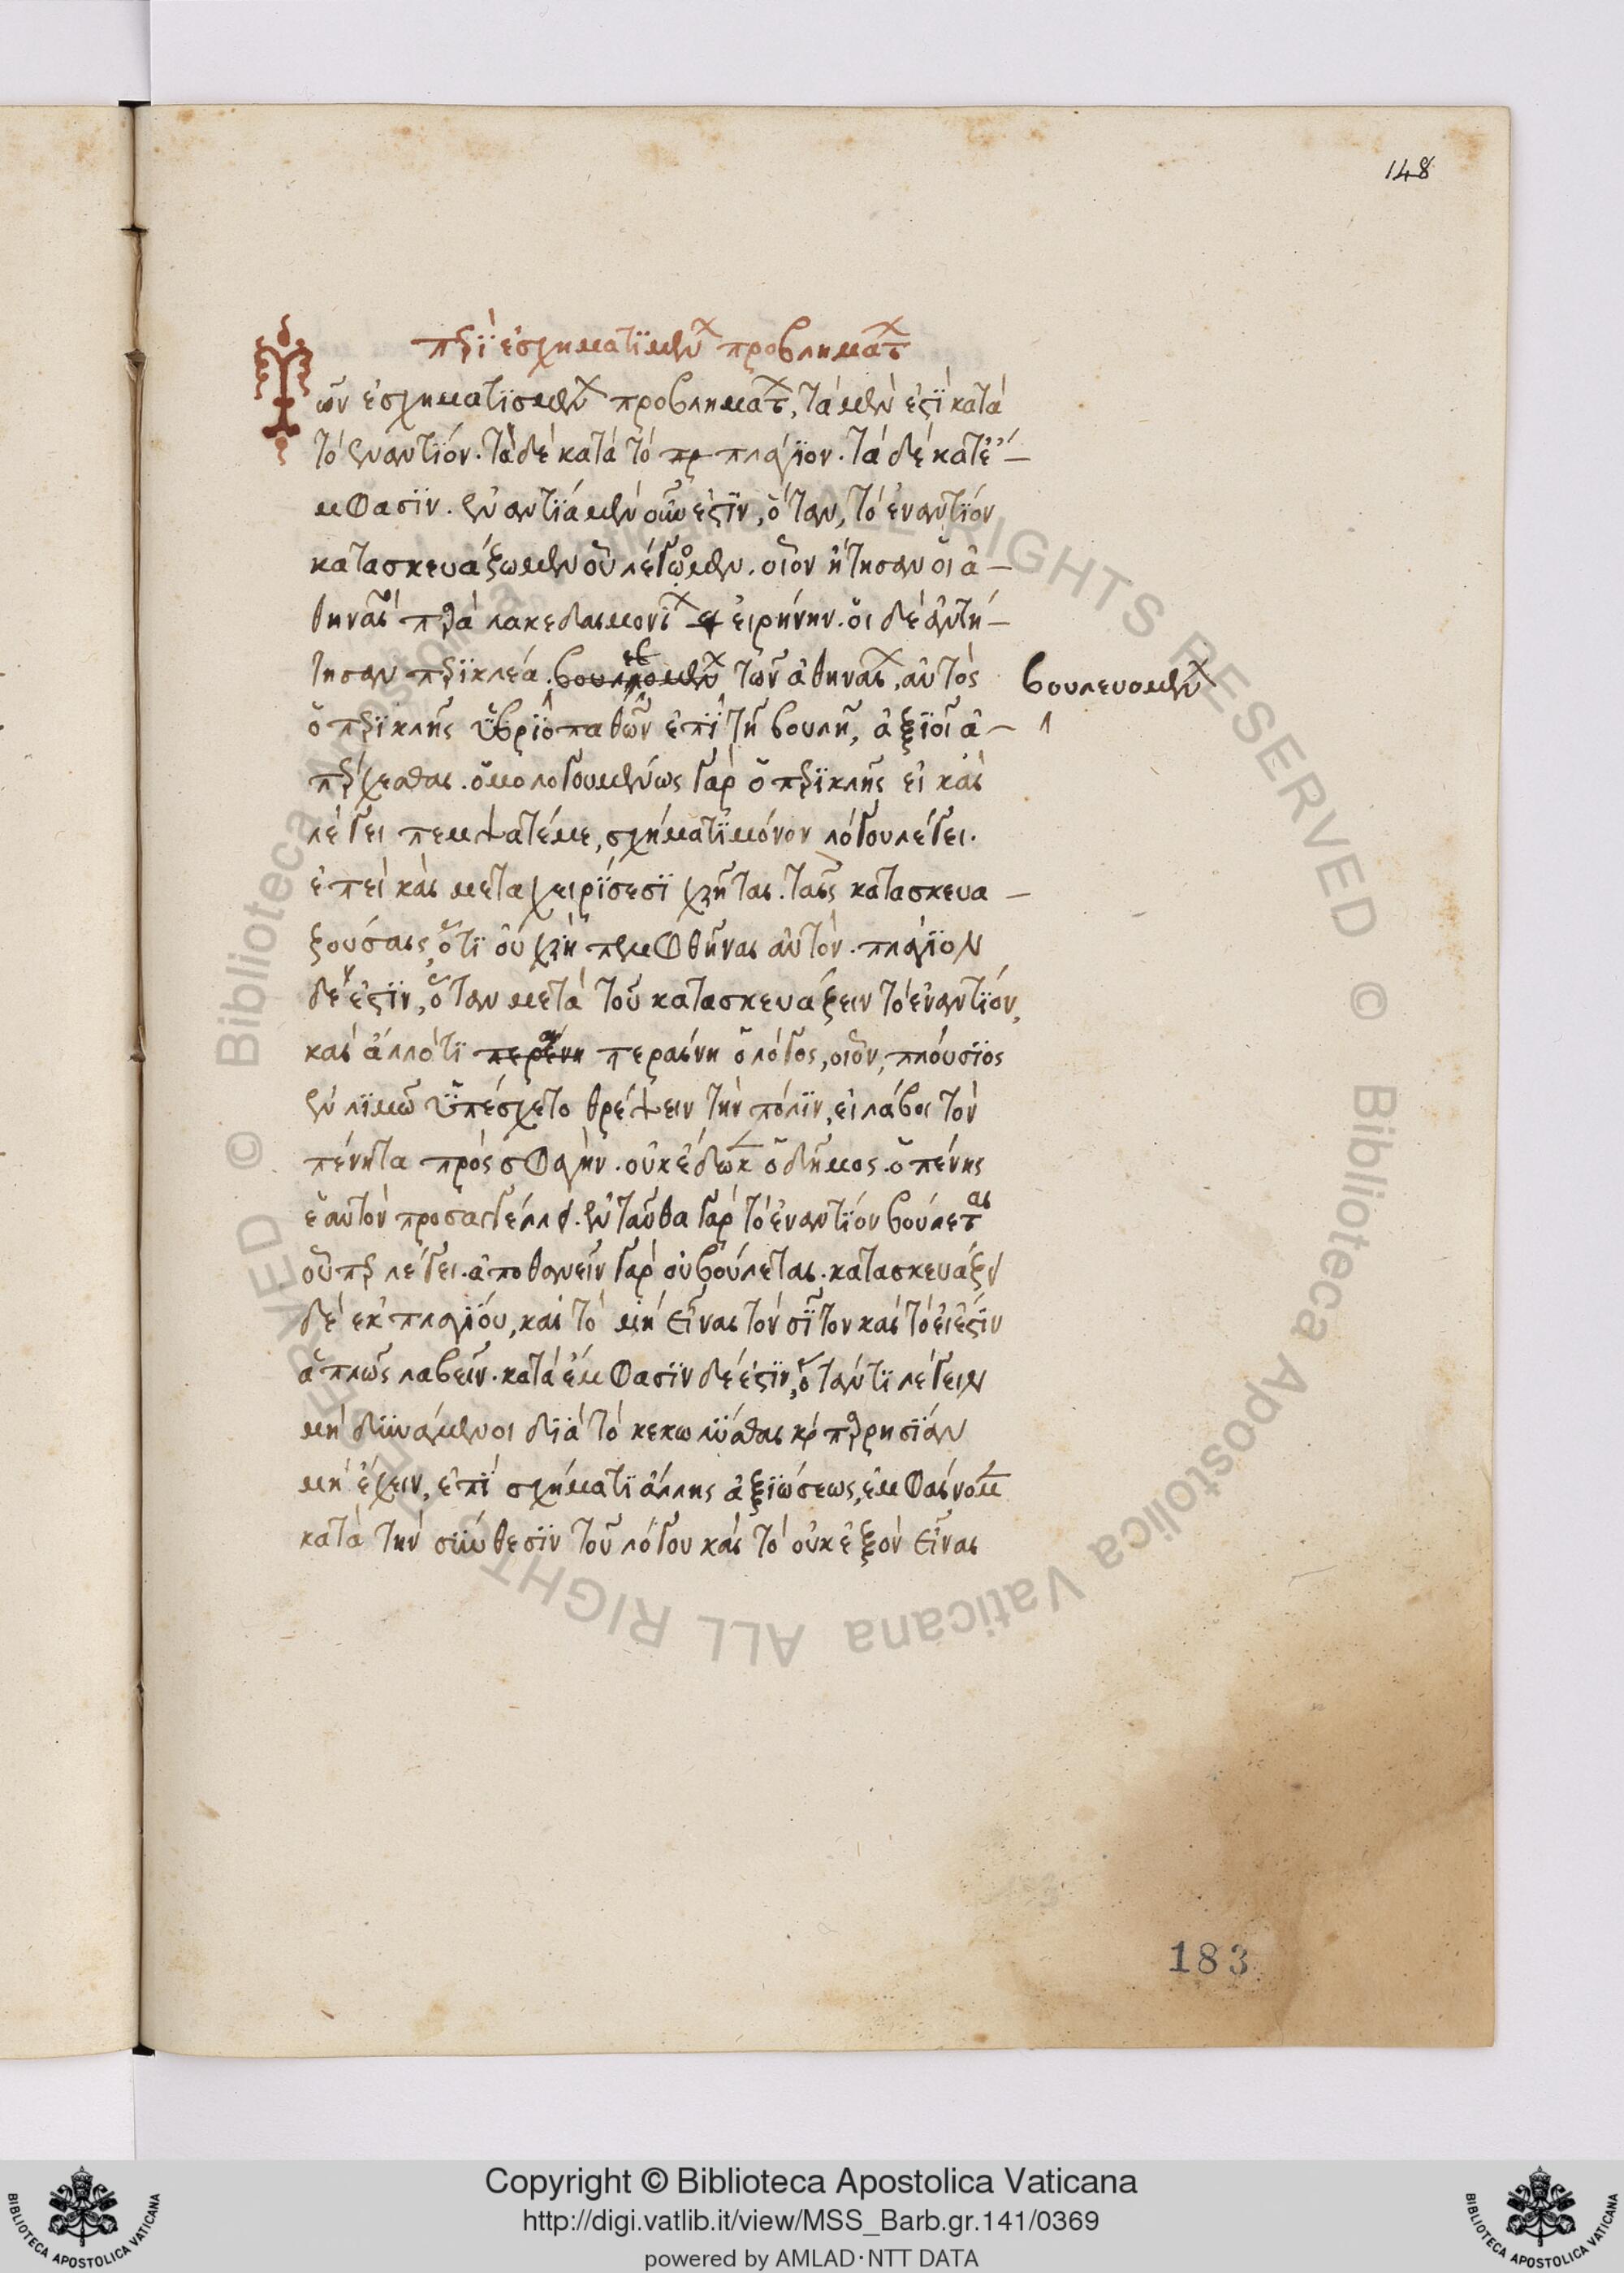 148
περὶ ἐσχηματιμένων προβλημάτων
Τῶν ἐσχηματισμένων προβλημάτων, τὰ μέν ἐστι κατὰ
τὸ ἐναντίον. τὰ δὲ κατὰ τὸ πρ πλάγιον. τὰ δὲ κατ' ἔ-
μφασιν. ἐναντία μὲν οὖν ἐστιν, ὅταν, τὸ ἐναντίον
κατασκευάζωμεν οὗ λέγομεν. οἷον ᾔτησαν οἱ ἀ-
θηναῖοι παρὰ λακεδαιμονίων εἰρήνην. οἱ δὲ ἀντή-
τησαν περικλέα. βουλομένων τῶν ἀθηναίων, αὐτὸς
βουλευομένων
ὁ περικλῆς ἐπὶ τῇ βουλῇ, ἀξιοῖ ἀ-
πέρχεσθαι. ὁμολογουμένως γὰρ ὁ περικλῆς εἰ καὶ
λέγει πέμψατέ με, σχήματι μόνον λόγου λέγει.
ἐπεὶ καὶ μεταχειρίσεσι χρῆται. ταῖς κατασκευα-
ζούσαις, ὅτι οὐ χρὴ πεμφθῆναι αὐτόν. πλάγιον
δέ ἐστιν, ὅταν μετὰ τοῦ κατασκευάζειν τὸ ἐναντίον,
καὶ ἄλλό τι περαίνη περαίνη ὁ λόγος, οἷον, πλούσιος
ἐν λιμῶ ὑπέσχετο θρέψειν τὴν πόλιν, εἰ λάβοι τὸν
πένητα πρὸς σφαγήν. οὐκ ἔδωκεν ὁ δῆμος. ὁ πένης
ἑαυτὸν προσαγγέλλει. ἐνταῦθα γὰρ τὸ ἐναντίον βούλεται
οὗπερ λέγει. ἀποθανεῖν γὰρ οὐ βούλεται. κατασκευάζει
δὲ ἐκ πλαγίου, καὶ τὸ μὴ εἶναι τὸν σῖτον καὶ τὸ εἰ ἔστιν
ἁπλῶς λαβεῖν. κατὰ ἔμφασιν δέ ἐστιν, ὅταν τι λέγειν
μὴ δυνάμενοι διὰ τὸ κεκωλύσθαι καὶ παρρησίαν
μὴ ἔχειν, ἐπὶ σχήματι ἄλλης ἀξιώσεως, ἐμφαίνομεν
κατὰ τὴν σύνθεσιν τοῦ λόγου καὶ τὸ οὐκ ἐξὸν εἶναι
183
Copyright © Biblioteca Apostolica Vaticana
http://digi.vatlib.it/view/MSS_Barb.gr.141/0369
powered by AMLAD·NTT DATA